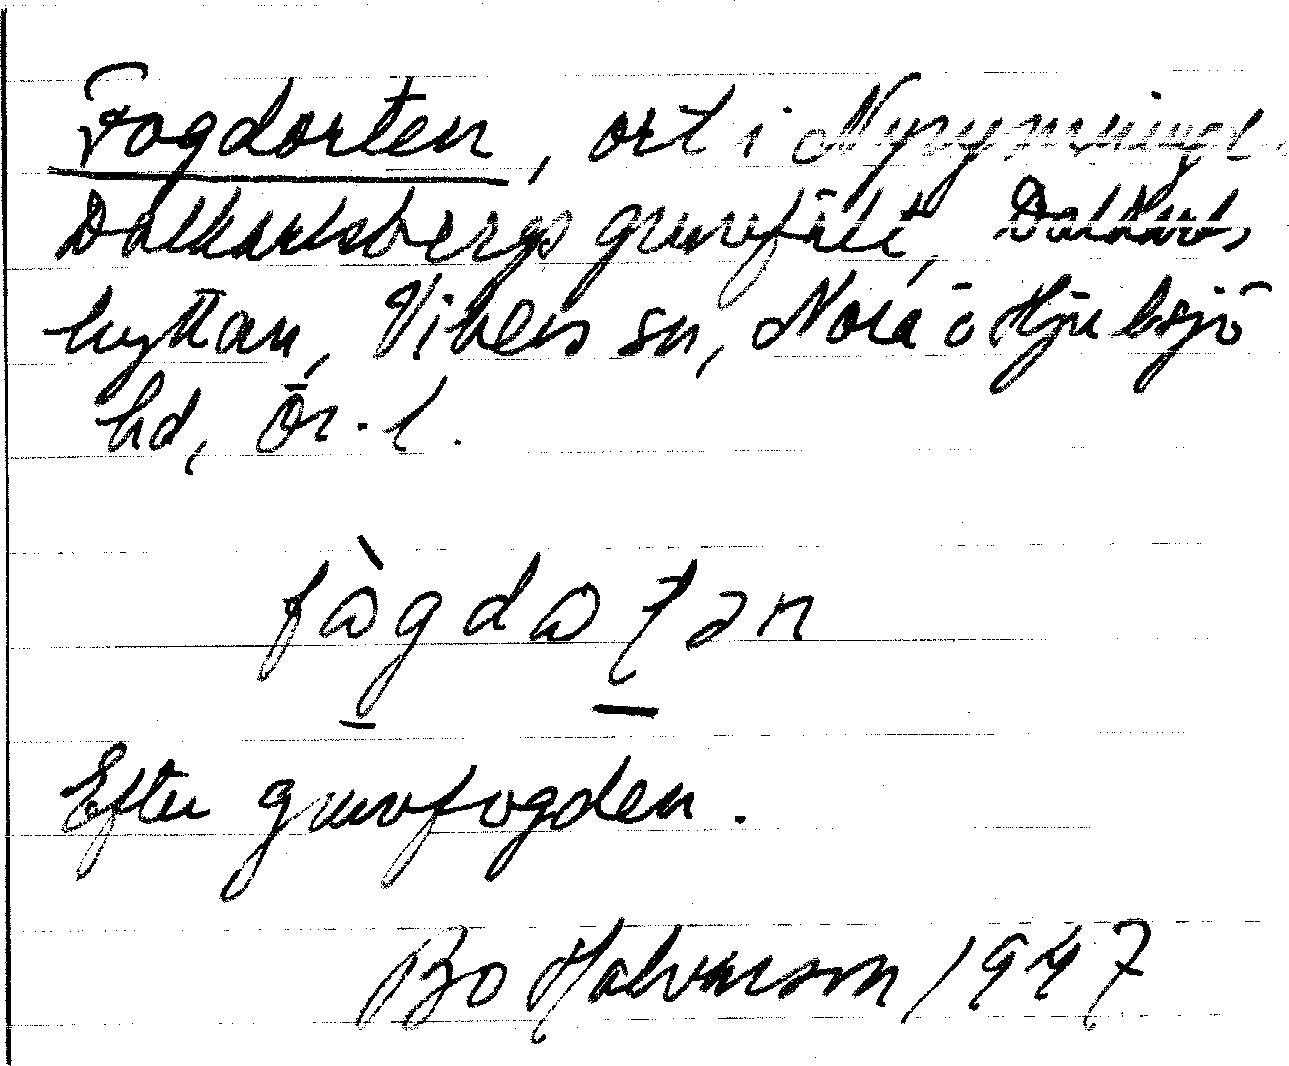 Fogdorten, ort i Nyrymningen
Dalkarlsbergs gruvfält, Dalkarls
hyttan, Vikers sn, Nora o Hjulsjö
hd, Ör. l.
fàgdaƪən
Efter gruvfogden.
Bo Halvarson 1947